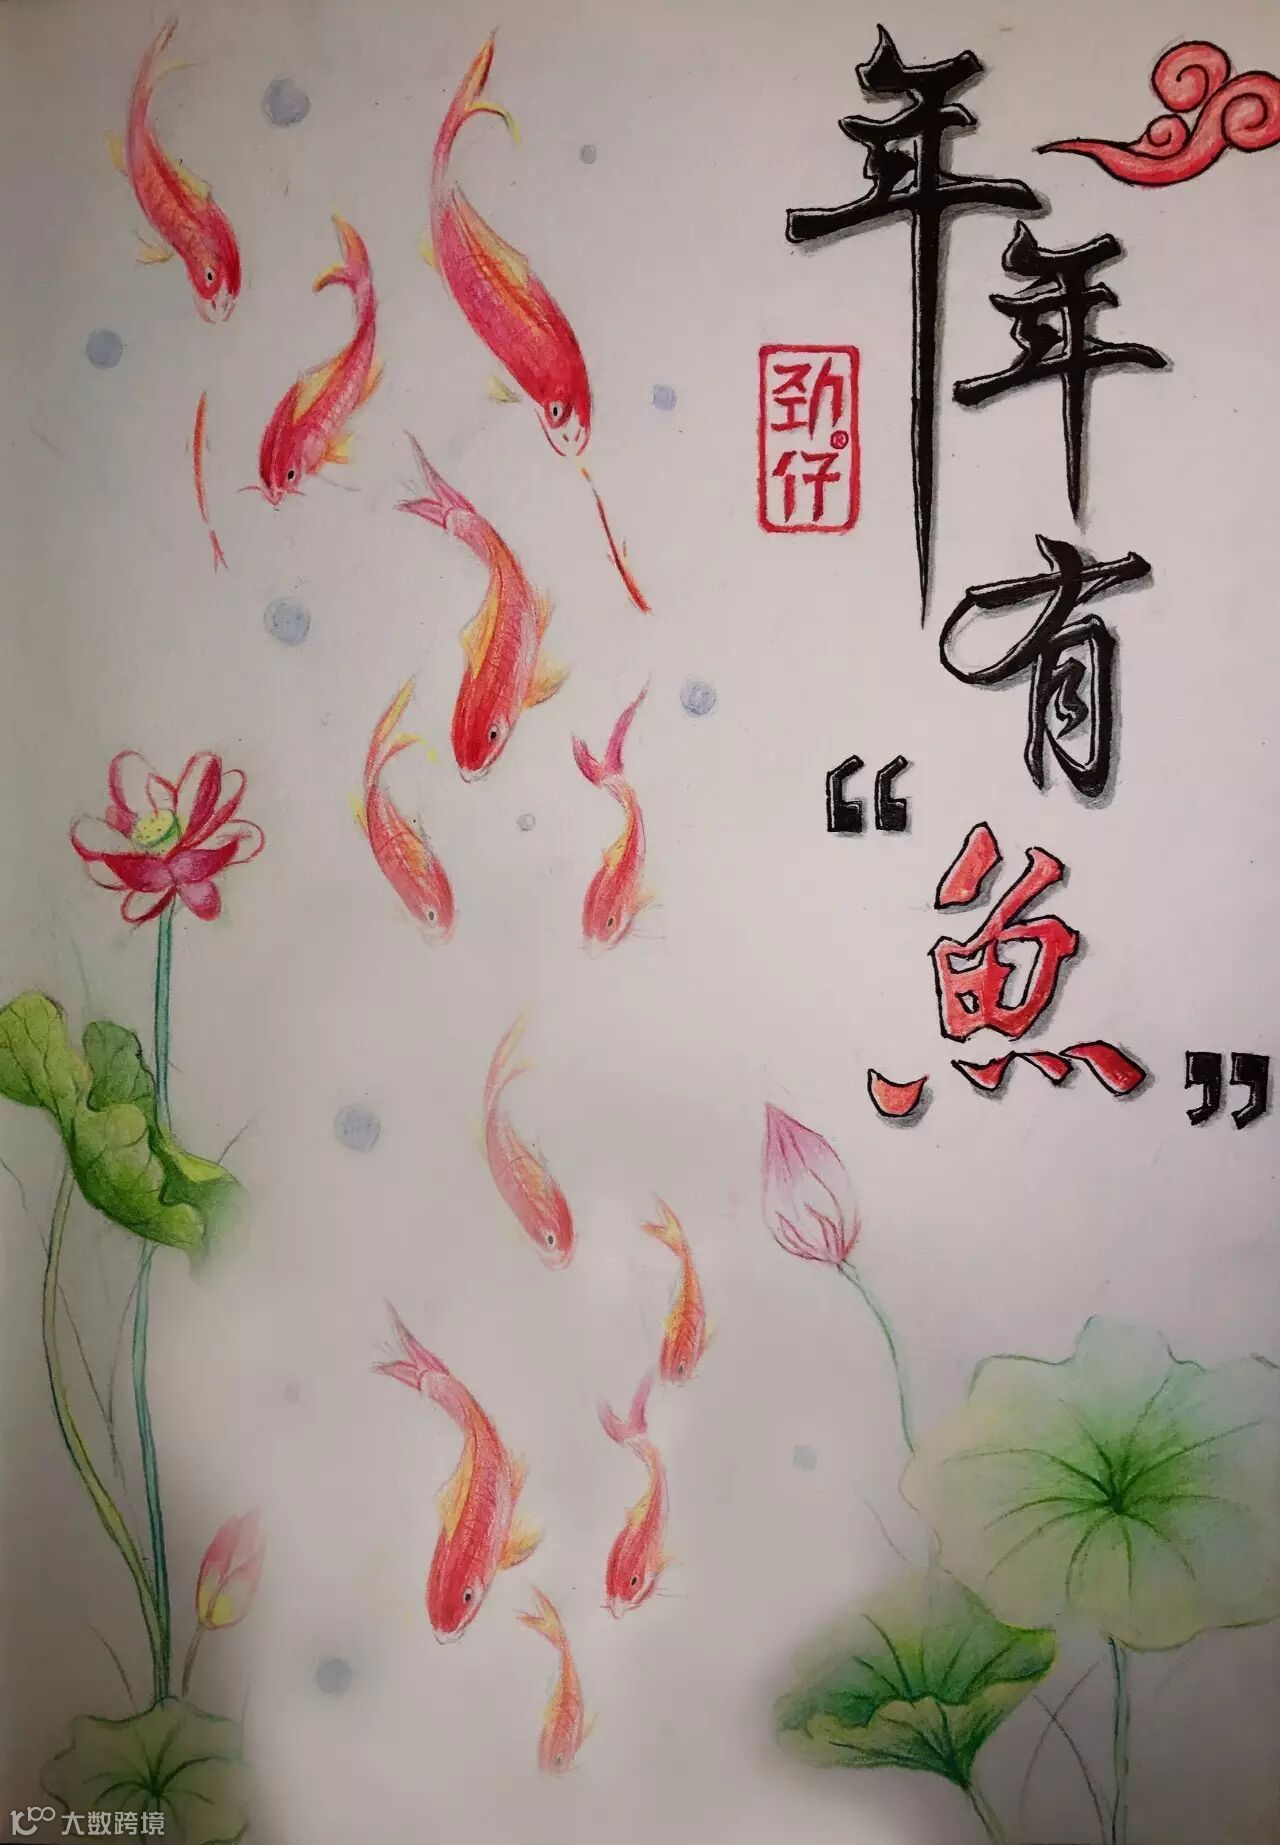 年年有
“魚”
劲仔®
大数跨境